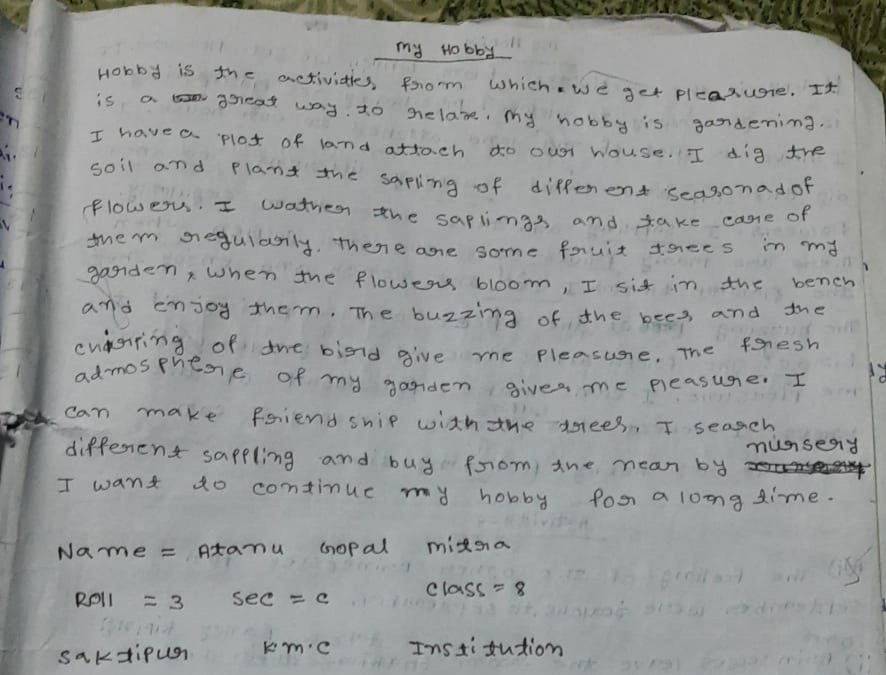 My Hobby
Hobby is the activities from which we get pleasure. It
is a great way to relaxe. My hobby is gardening.
I have a plot of land attach to our house. I dig the
soil and plant the sapling of different seasonad of
flowers. I wather the saplings and take care of
them regularly. There are some fruit trees in my
garden, when the flowers bloom, I sit in the bench
and enjoy them. The buzzing of the bees and the
chirping of the bird give me pleasure. The fresh
admosphere of my garden gives me pleasure. I
can make friendship with the trees. I search
different sappling and buy from the near by nursery
I want to continue my hobby for a long time.
Name = Atanu Gopal Mitra
Roll = 3 Sec = C Class = 8
Saktipur K.M.C Institution